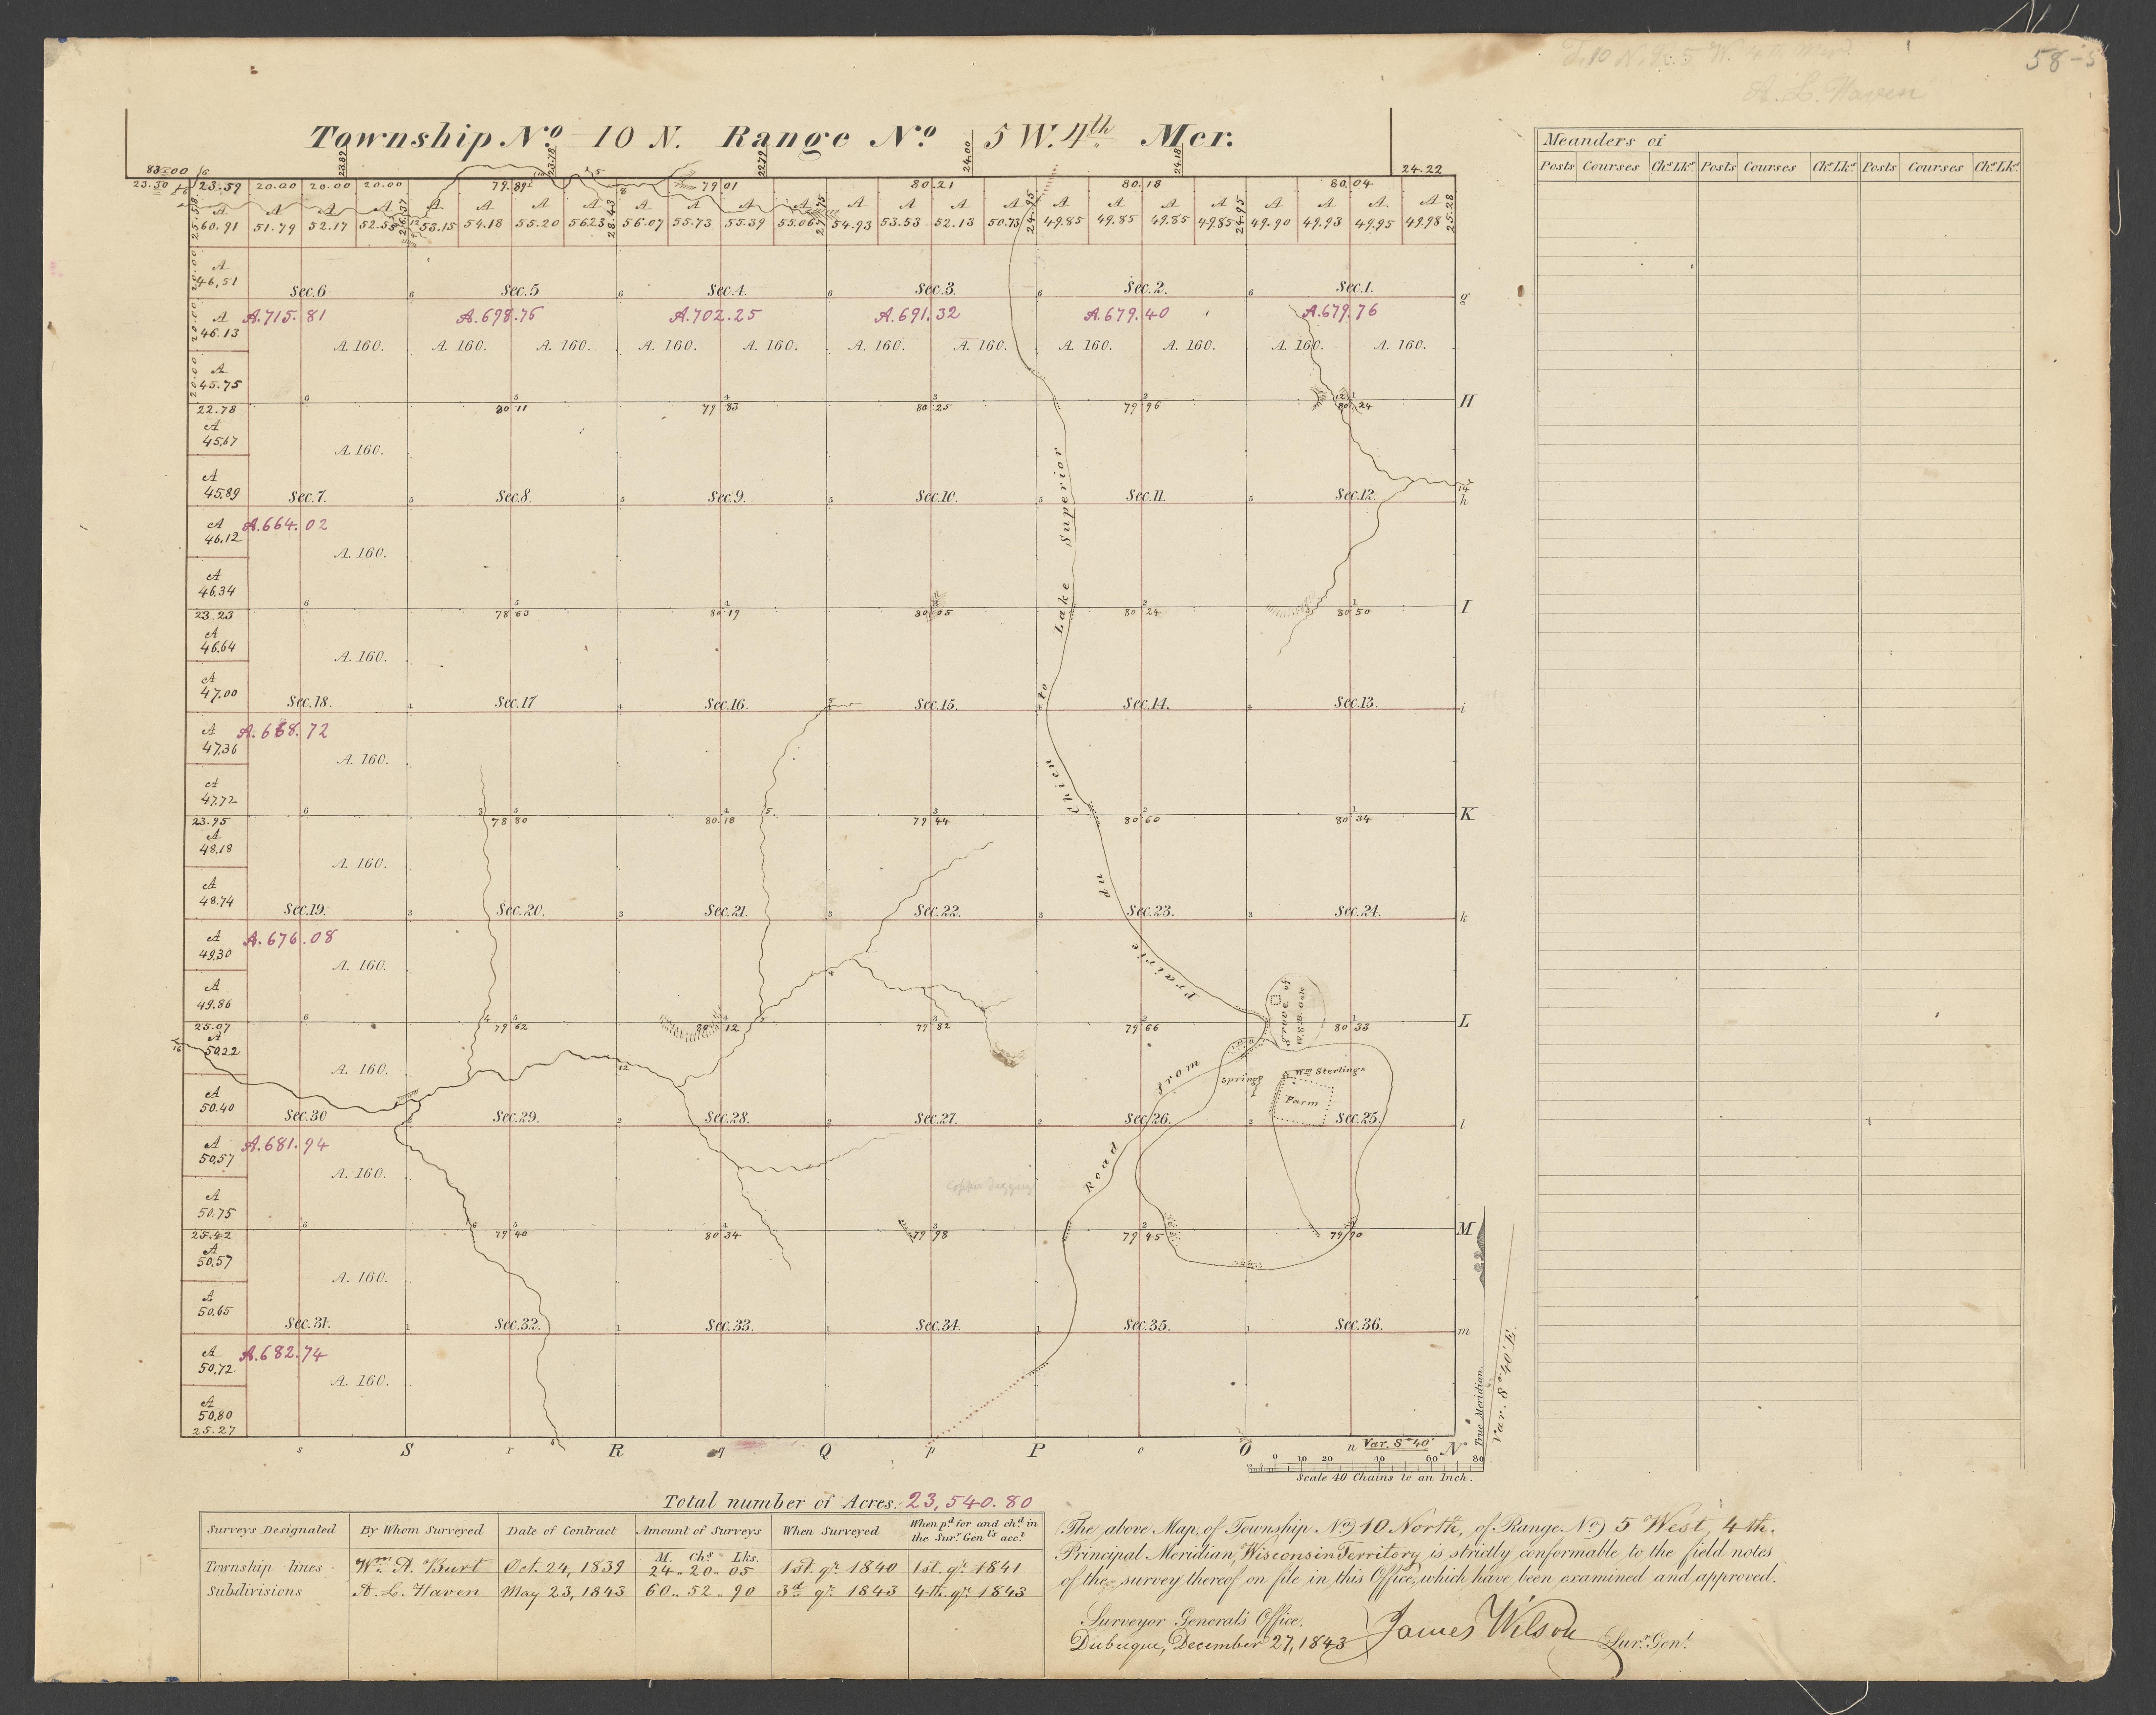 58-5
T. 10 N. R. 5 W. 4th Mer.
A. L. Haven
Township No. 10 N. Range No. 5 W. 4th Mer.
Meanders of
Posts Courses Chs. Lks. Posts Courses Chs. Lks. Posts Courses Chs. Lks.
83.00 6 23.89 23.78 22.79 24.00 24.18 24.22
23.50 23.59 20.00 20.00 20.00 79.89 79 01 80.21 80.18 80.04
A A A A A A A A A A A A A A A A A A A A A A A A
60.91 51.79 52.17 52.55 53.15 54.18 55.20 56.23 56.07 55.73 55.39 55.06 54.93 53.53 52.13 50.73 49.85 49.85 49.85 49.85 49.90 49.93 49.95 49.98
25.58 26.37 28.43 27.75 24.95 24.95 25.28
A
46.51
Sec. 6 Sec. 5 Sec. 4. Sec. 3. Sec. 2. Sec. 1. g
A
46.13
A. 715.81 A. 698.76 A. 702.25 A. 691.32 A. 679.40 A. 679.76
A. 160. A. 160. A. 160. A. 160. A. 160. A. 160. A. 160. A. 160. A. 160. A. 160. A. 160.
A
45.75
22.78 80 11 79 83 80 25 79 96 80 24 H
A
45.67
A. 160.
A
45.89
Sec. 7. Sec. 8. Sec. 9. Sec. 10. Sec. 11. Sec. 12. h
A
46.12
A. 664.02
A. 160.
A
46.34
23.23 78 63 80 19 80 05 80 24 80 50 I
A
46.64
A. 160.
A
47.00
Sec. 18. Sec. 17 Sec. 16. Sec. 15. Sec. 14. Sec. 13. i
A
47.36
A. 668.72
A. 160.
A
47.72
23.95 78 80 80.18 79 44 80 60 80 34 K
A
48.18
A. 160.
A
48.74
Sec. 19. Sec. 20. Sec. 21. Sec. 22. Sec. 23. Sec. 24. k
A
49.30
A. 676.08
A. 160.
A
49.86
25.07 79 62 80 12 79 82 79 66 80 33 L
A
50.22
A. 160.
A
50.40
Sec. 30 Sec. 29. Sec. 28. Sec. 27. Sec. 26. Sec. 25. l
A
50.57
A. 681.94
A. 160.
A
50.75
25.42 79 40 80 34 79 98 79 45 79 90 M
A
50.57
A. 160.
A
50.65
Sec. 31. Sec. 32. Sec. 33. Sec. 34. Sec. 35. Sec. 36. m
A
50.72
A. 682.74
A. 160.
A
50.80
25.27
Road from Prairie du Chien to Lake Superior
Grove of
W. & B. Oak
Springs
Wm. Sterlings
Farm
Copper Diggings
s S r R q Q p P o O n Var. 8° 40' N
True Meridian.
Var. 8° 40' E.
0 10 20 40 60 80
Scale 40 Chains to an Inch.
Total number of Acres. 23,540.80
Surveys Designated By Whom Surveyed Date of Contract Amount of Surveys When Surveyed When pd. for and chd. in the Surr. Genls. acct.
M. Chs. Lks.
Township lines Wm. A. Burt Oct. 24, 1839 24.. 20.. 05 1st. qr. 1840 1st. qr. 1841
Subdivisions A. L. Haven May 23, 1843 60.. 52.. 90 3d. qr. 1843 4th. qr. 1843
The above Map, of Township No) 10 North, of Range No) 5 West, 4th.
Principal Meridian, Wisconsin Territory is strictly conformable to the field notes
of the survey thereof on file in this Office, which have been examined and approved.
Surveyor General's Office,
Dubuque, December 27, 1843 James Wilson Surr. Genl.